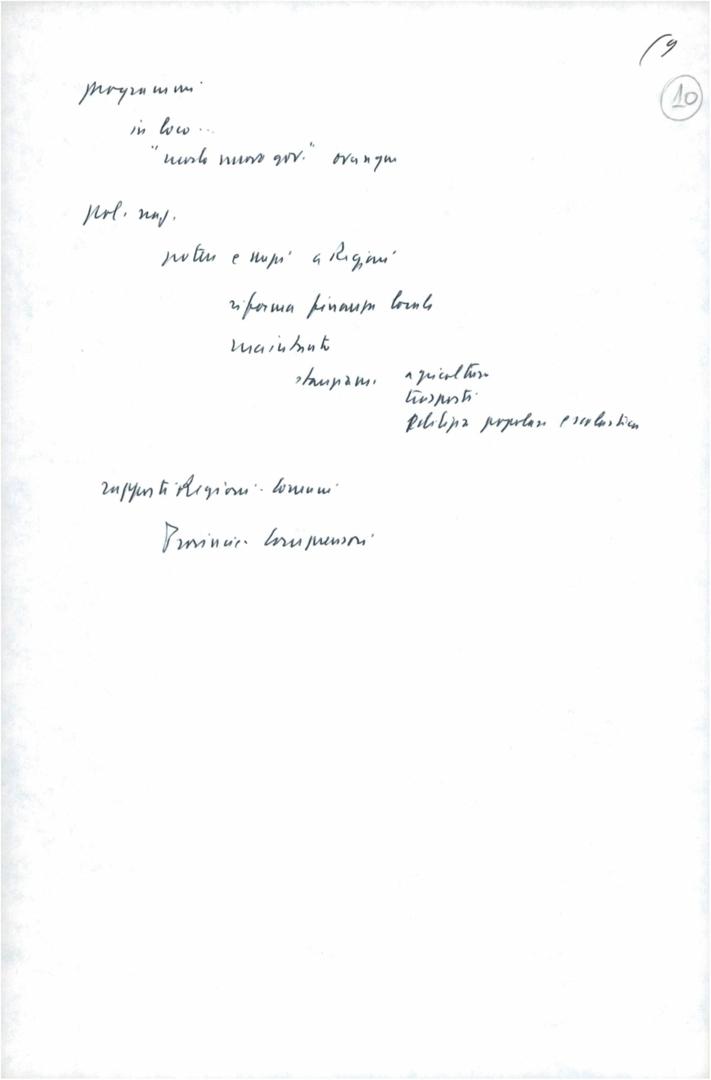 (9
10
programmi
in loco...
"modo nuovo gov." ovunque
pol. naz.
poteri e mezzi a Regioni
riforma finanza locale
stanziam. agricoltura
trasporti
edilizia popolare e scolastica
rapporti Regioni - Comuni
Province - Comprensori